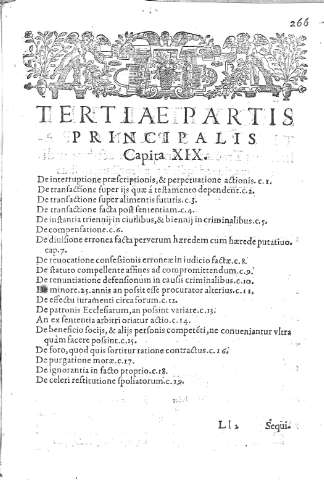 266
TERTIAE PARTIS
PRINCIPALIS
Capita XIX.
De interruptione præscriptionis, & perpetuatione actionis. c. 1.
De transactione super ijs quæ à testamento dependent. c. 2.
De transactione super alimentis futuris. c. 3.
De transactione facta post sententiam. c. 4.
De instantia triennij in ciuilibus, & biennij in criminalibus. c. 5.
De compensatione. c. 6.
De diuisione erronea facta per verum hæredem cum hærede putatiuo.
cap. 7.
De reuocatione confessionis erroneæ in iudicio factæ. c. 8.
De statuto compellente affines ad compromittendum. c. 9.
De renuntiatione defensionum in causis criminalibus. c. 10.
De minore. 25. annis an possit esse procurator alterius. c. 11.
De effectu iuramenti circa forum. c. 12.
De patronis Ecclesiarum, an possint variare. c. 13.
An ex sententia arbitri oriatur actio. c. 14.
De beneficio socijs, & alijs personis competēti, ne conueniantur vltra
quàm facere possint. c. 15.
De foro, quod quis sortitur ratione contractus. c. 16.
De purgatione moræ. c. 17.
De ignorantia in facto proprio. c. 18.
De celeri restitutione spoliatorum. c. 19.
Ll 2 Sequi.